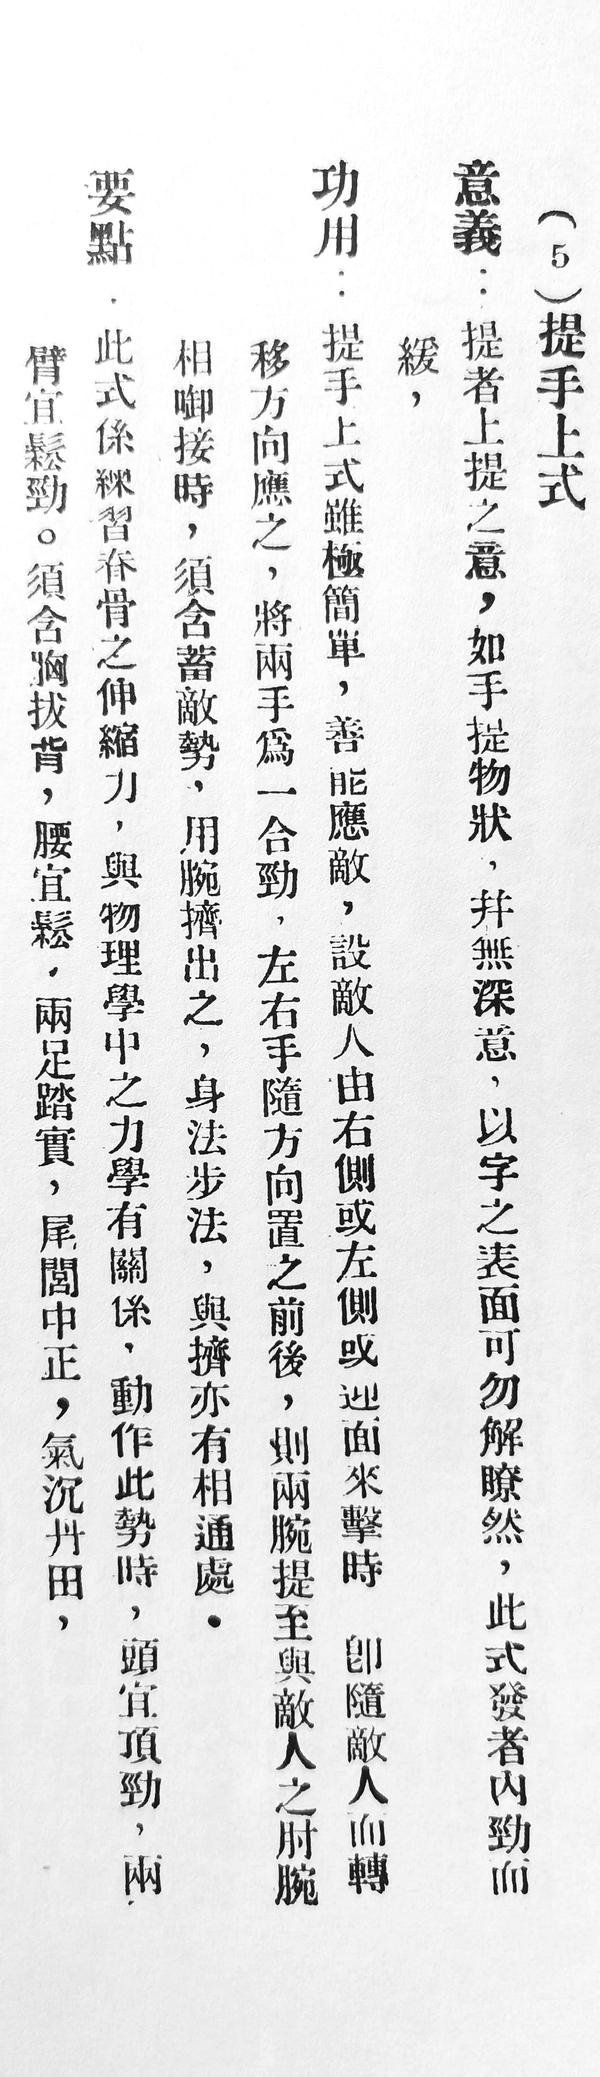 （5）提手上式
意義：提者上提之意，如手提物狀，幷無深意，以字之表面可勿解瞭然，此式發者內勁而
緩，
功用：提手上式雖極簡單，善能應敵，設敵人由右側或左側或迎面來擊時 卽隨敵人而轉
移方向應之，將兩手爲一合勁，左右手隨方向置之前後，則兩腕提至與敵人之肘腕
相啣接時，須含蓄敵勢，用腕擠出之，身法步法，與擠亦有相通處。
要點．此式係練習脊骨之伸縮力，與物理學中之力學有關係，動作此勢時，頭宜頂勁，兩
臂宜鬆勁。須含胸拔背，腰宜鬆，兩足踏實，尾閭中正，氣沉丹田，